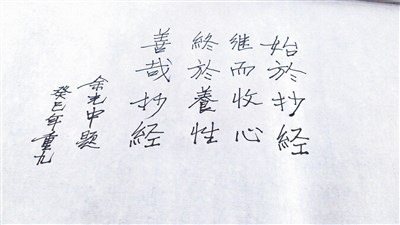 始於抄經
継而收心
終於養性
善哉抄經
余光中題
癸巳年重九